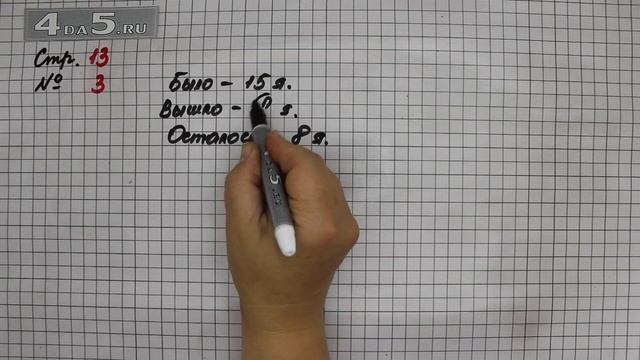 4DA5.RU
Стр. 13
№ 3
Было - 15 я.
Вышло - я.
8 я.